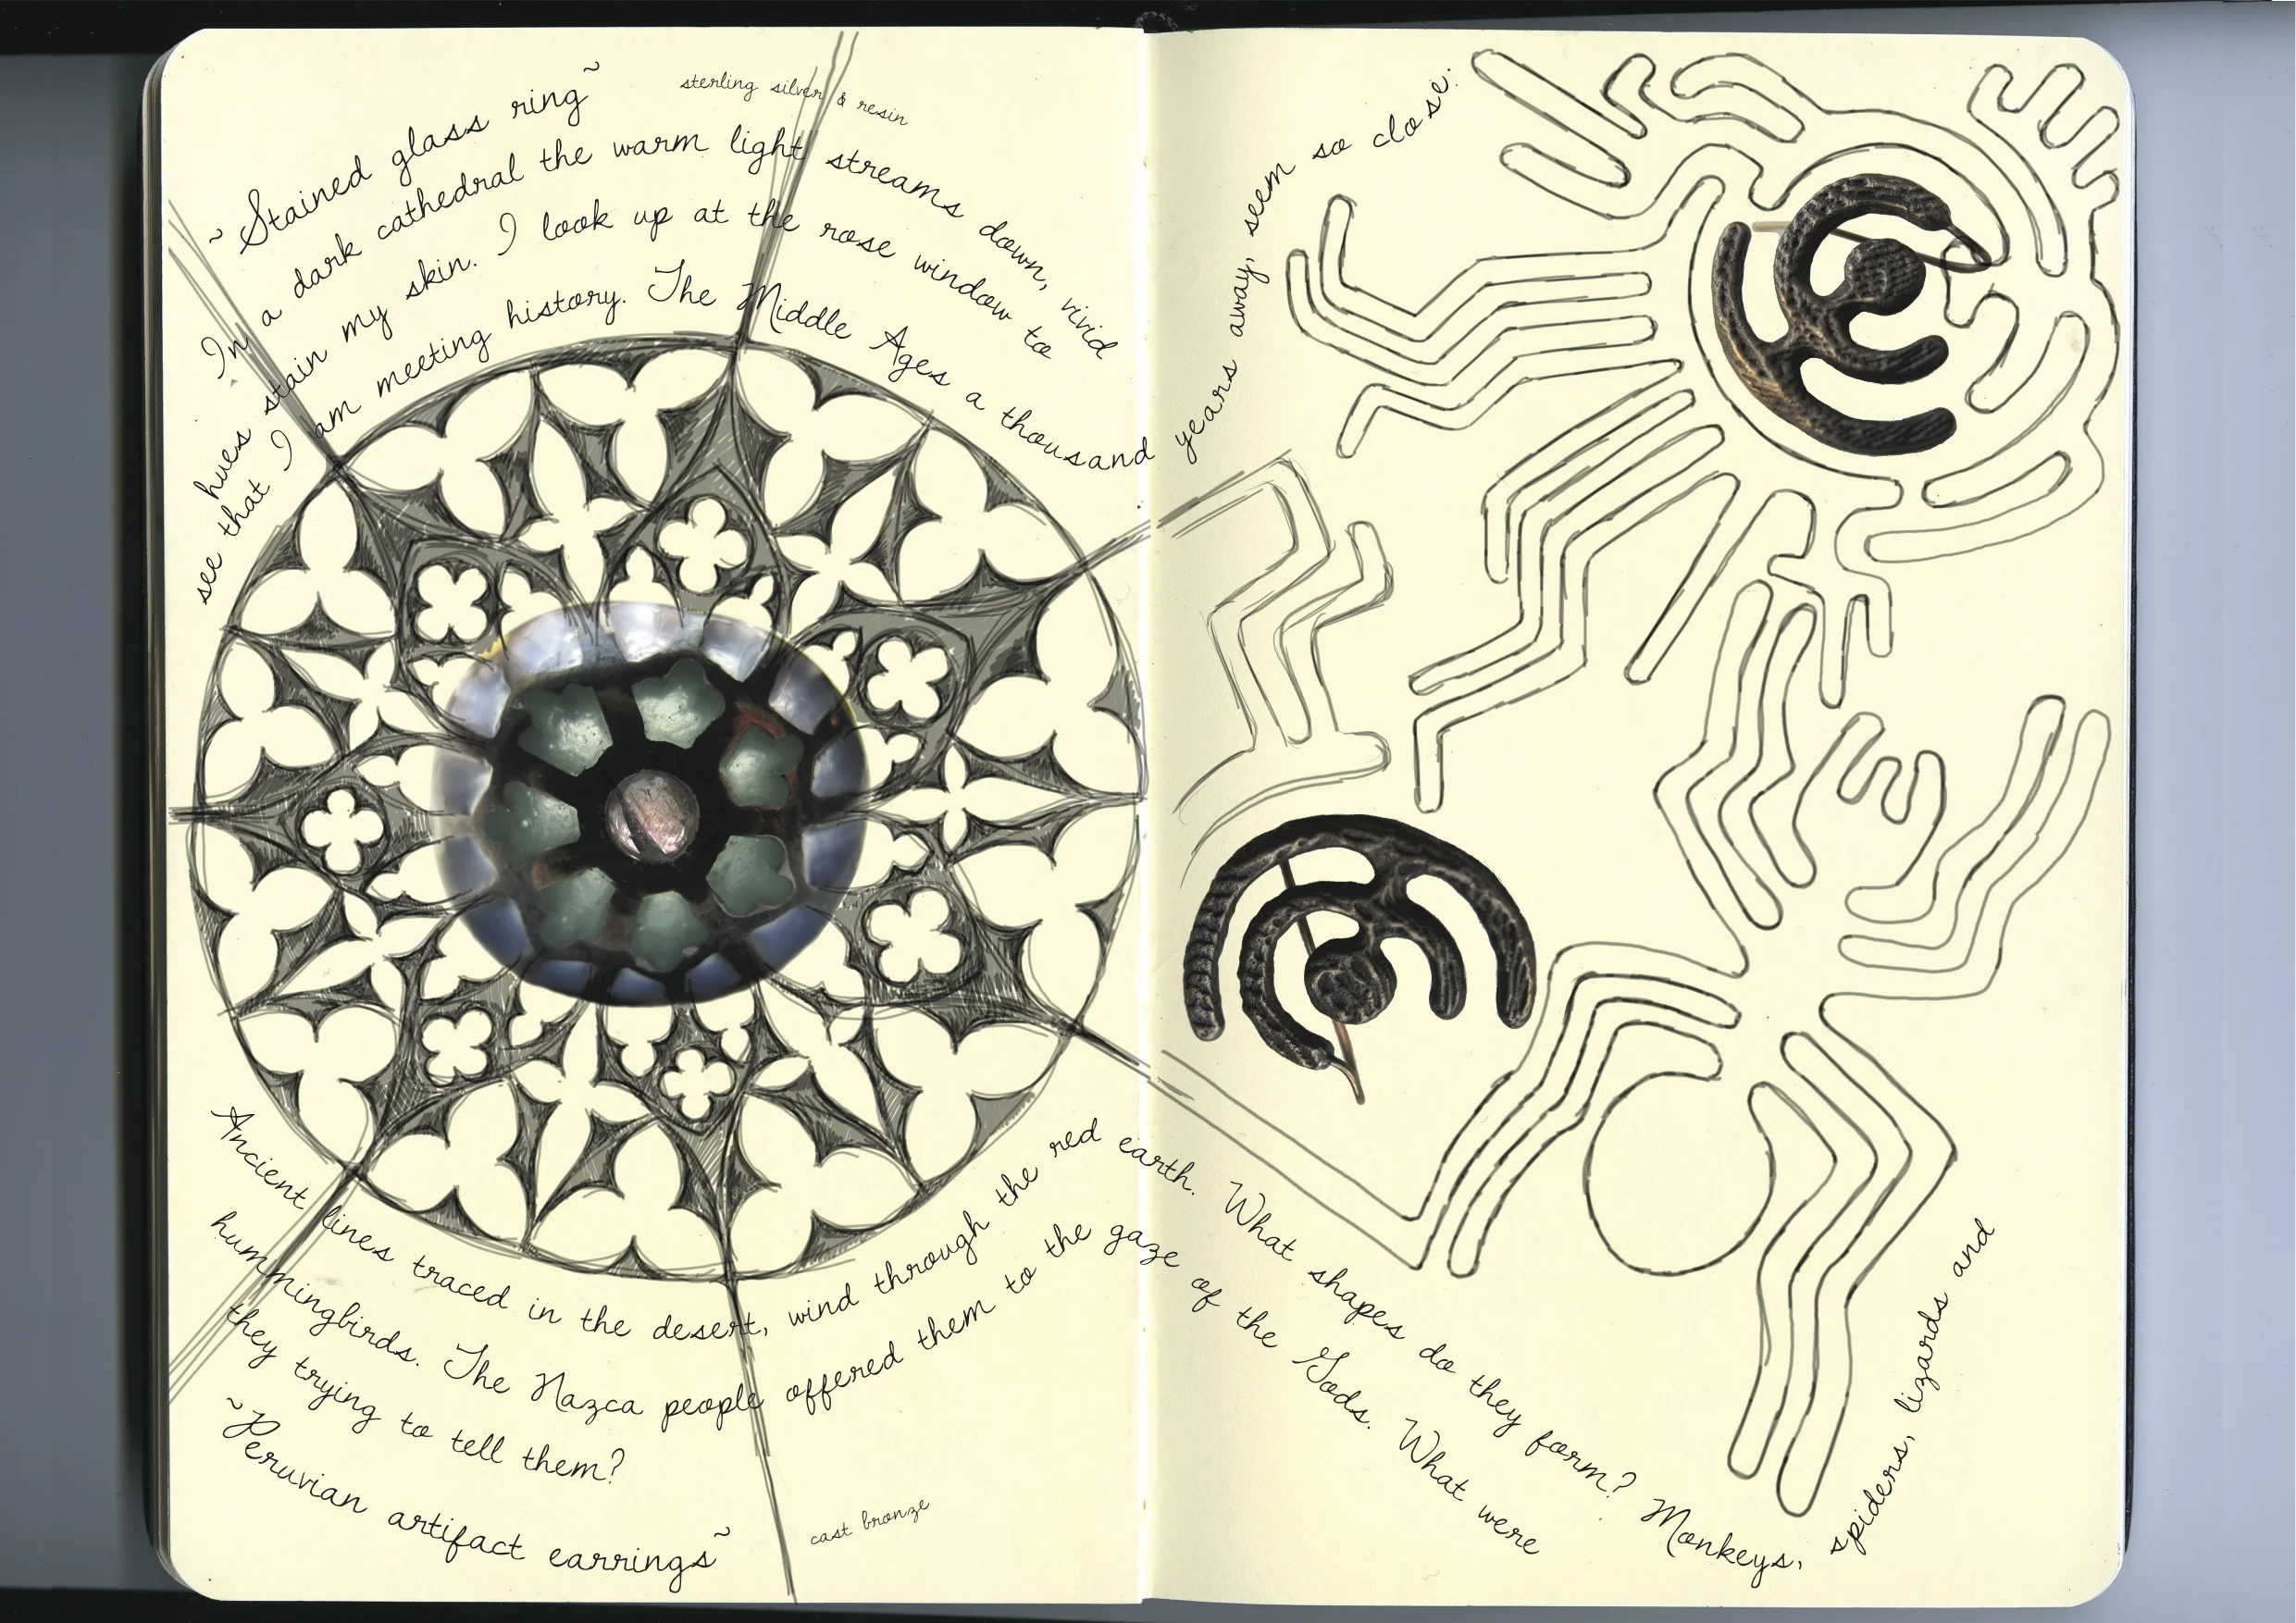 ~Stained glass ring~
sterling silver & resin
In a dark cathedral the warm light streams down, vivid
hues stain my skin. I look up at the rose window to
see that I am meeting history. The Middle Ages a thousand years away, seem so close.
Ancient lines traced in the desert, wind through the red earth. What shapes do they form? Monkeys, spiders, lizards and
hummingbirds. The Nazca people offered them to the gaze of the Gods. What were
they trying to tell them?
~Peruvian artifact earrings~
cast bronze